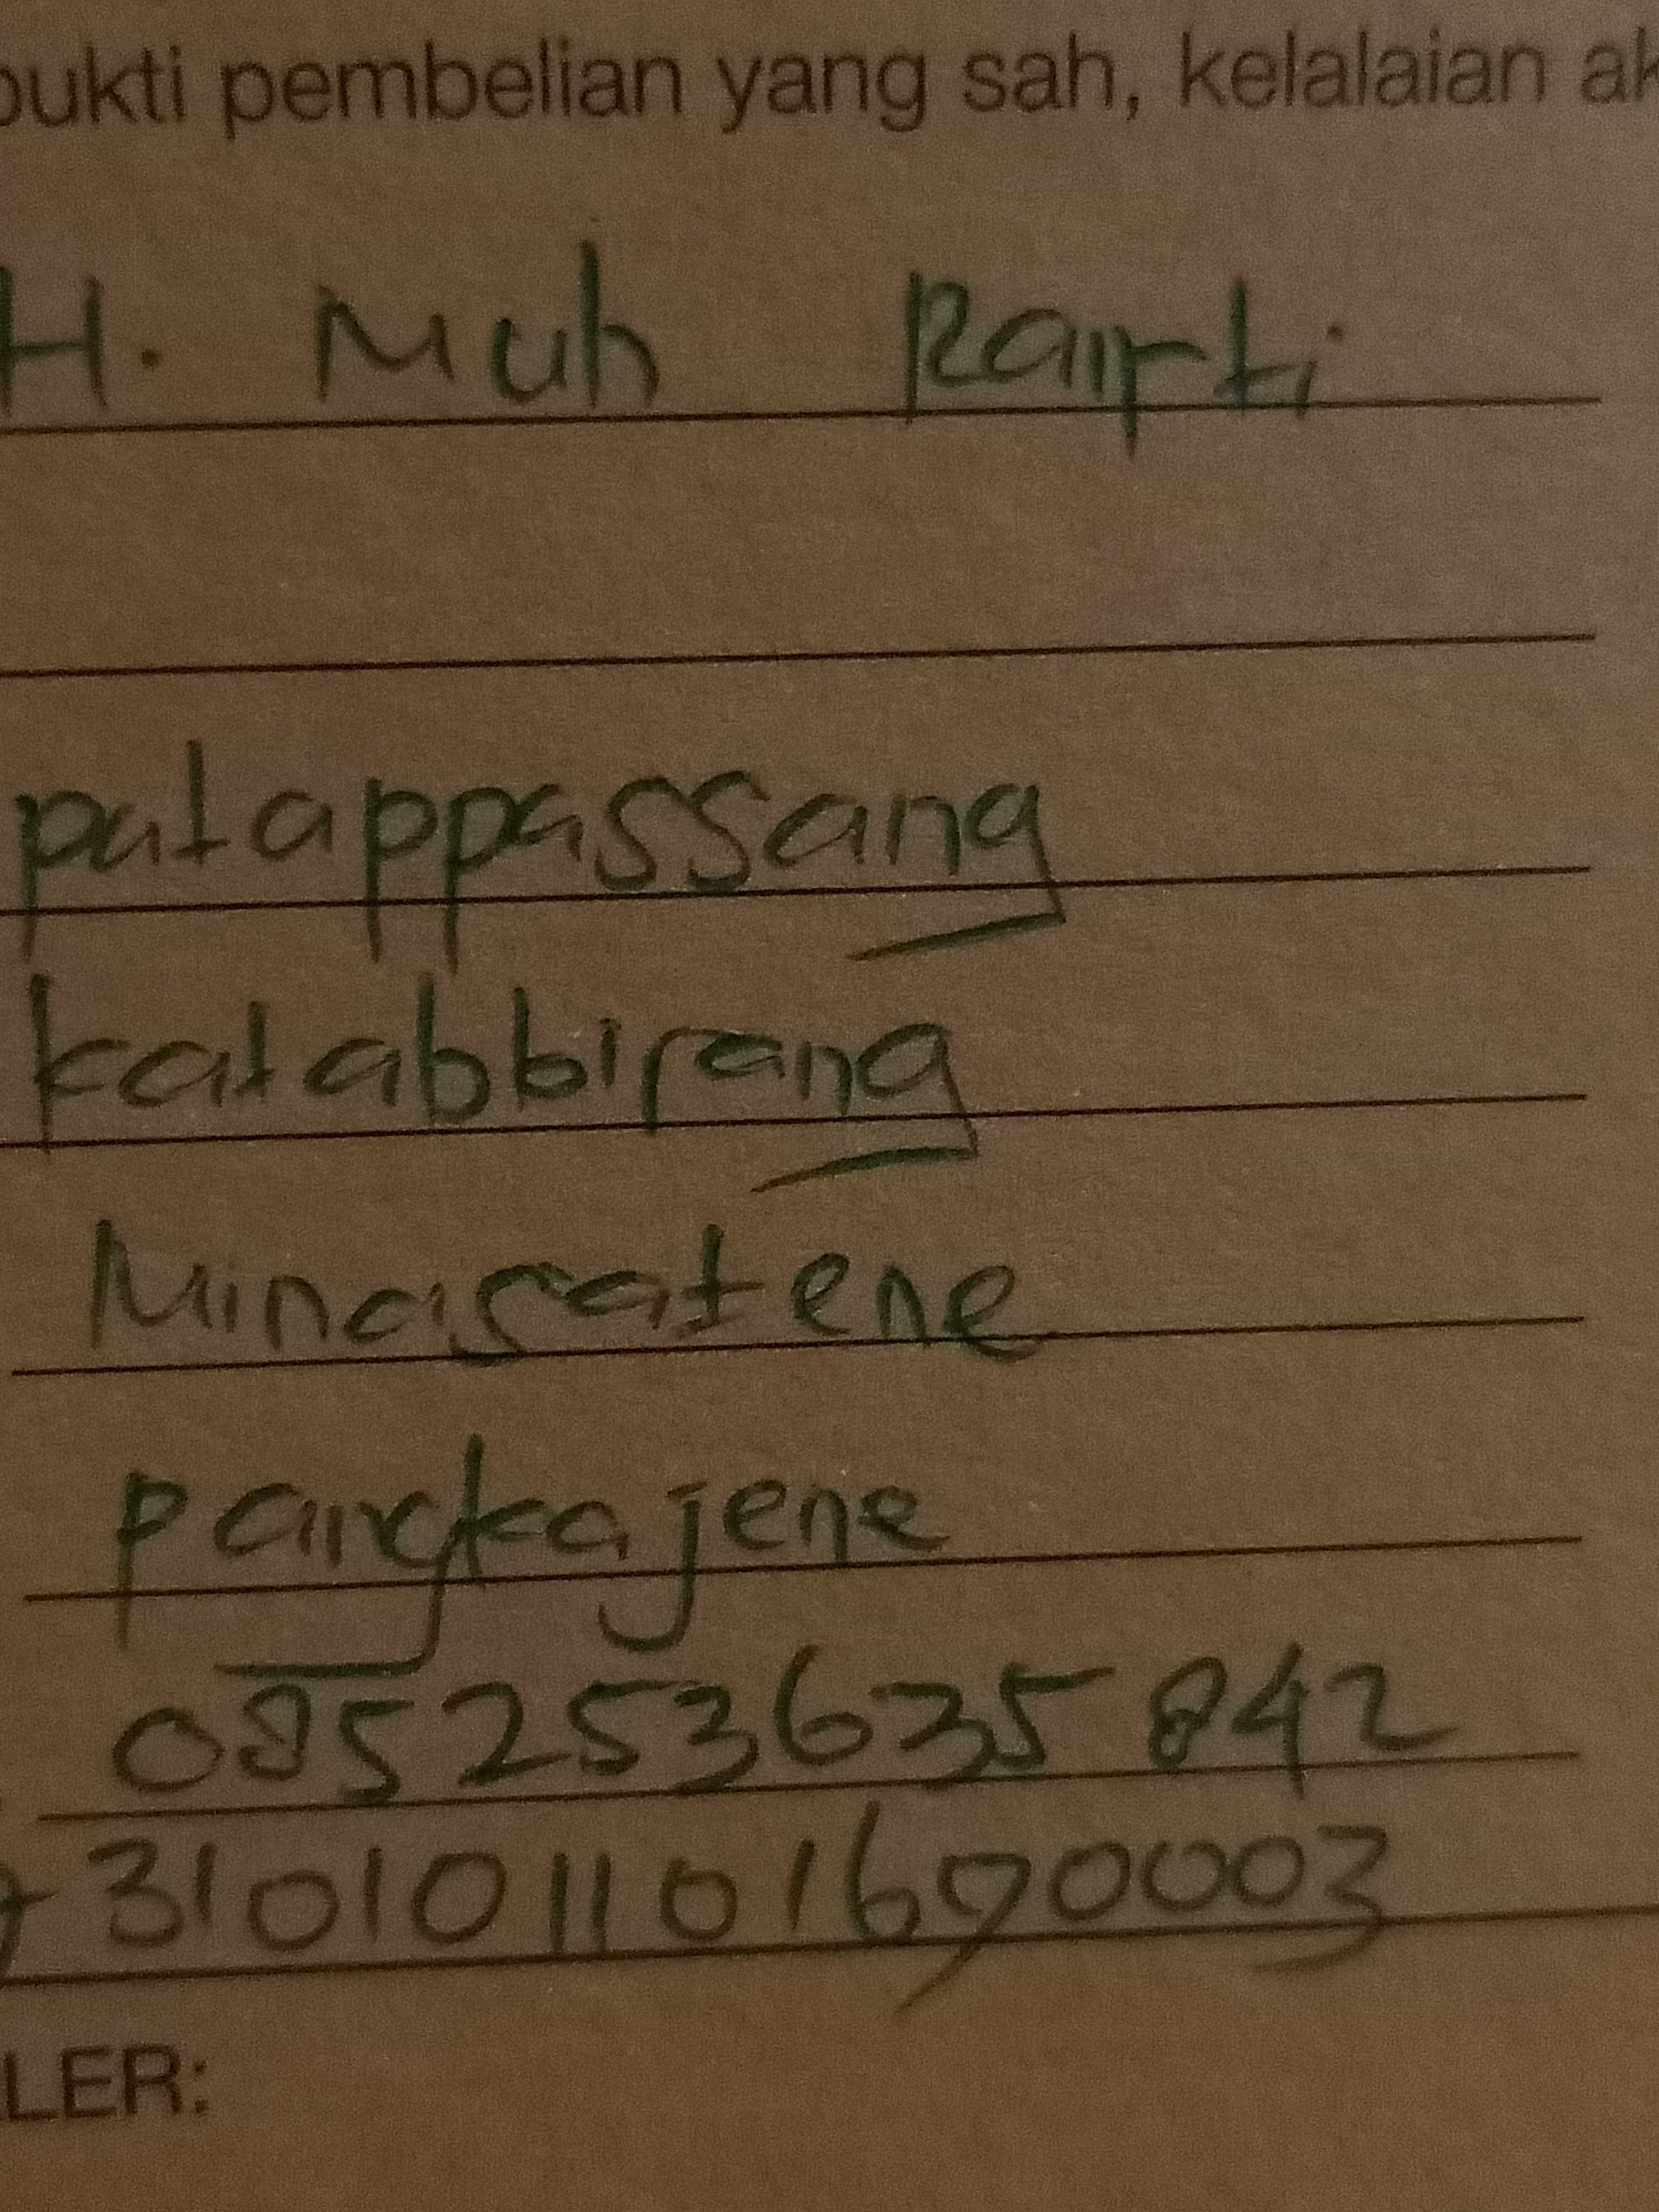 bukti pembelian yang sah, kelalaian ak
H. Muh
patappassang
katabbirang
Minasatene
pangkajene
085253635842
310101101690003
LER: